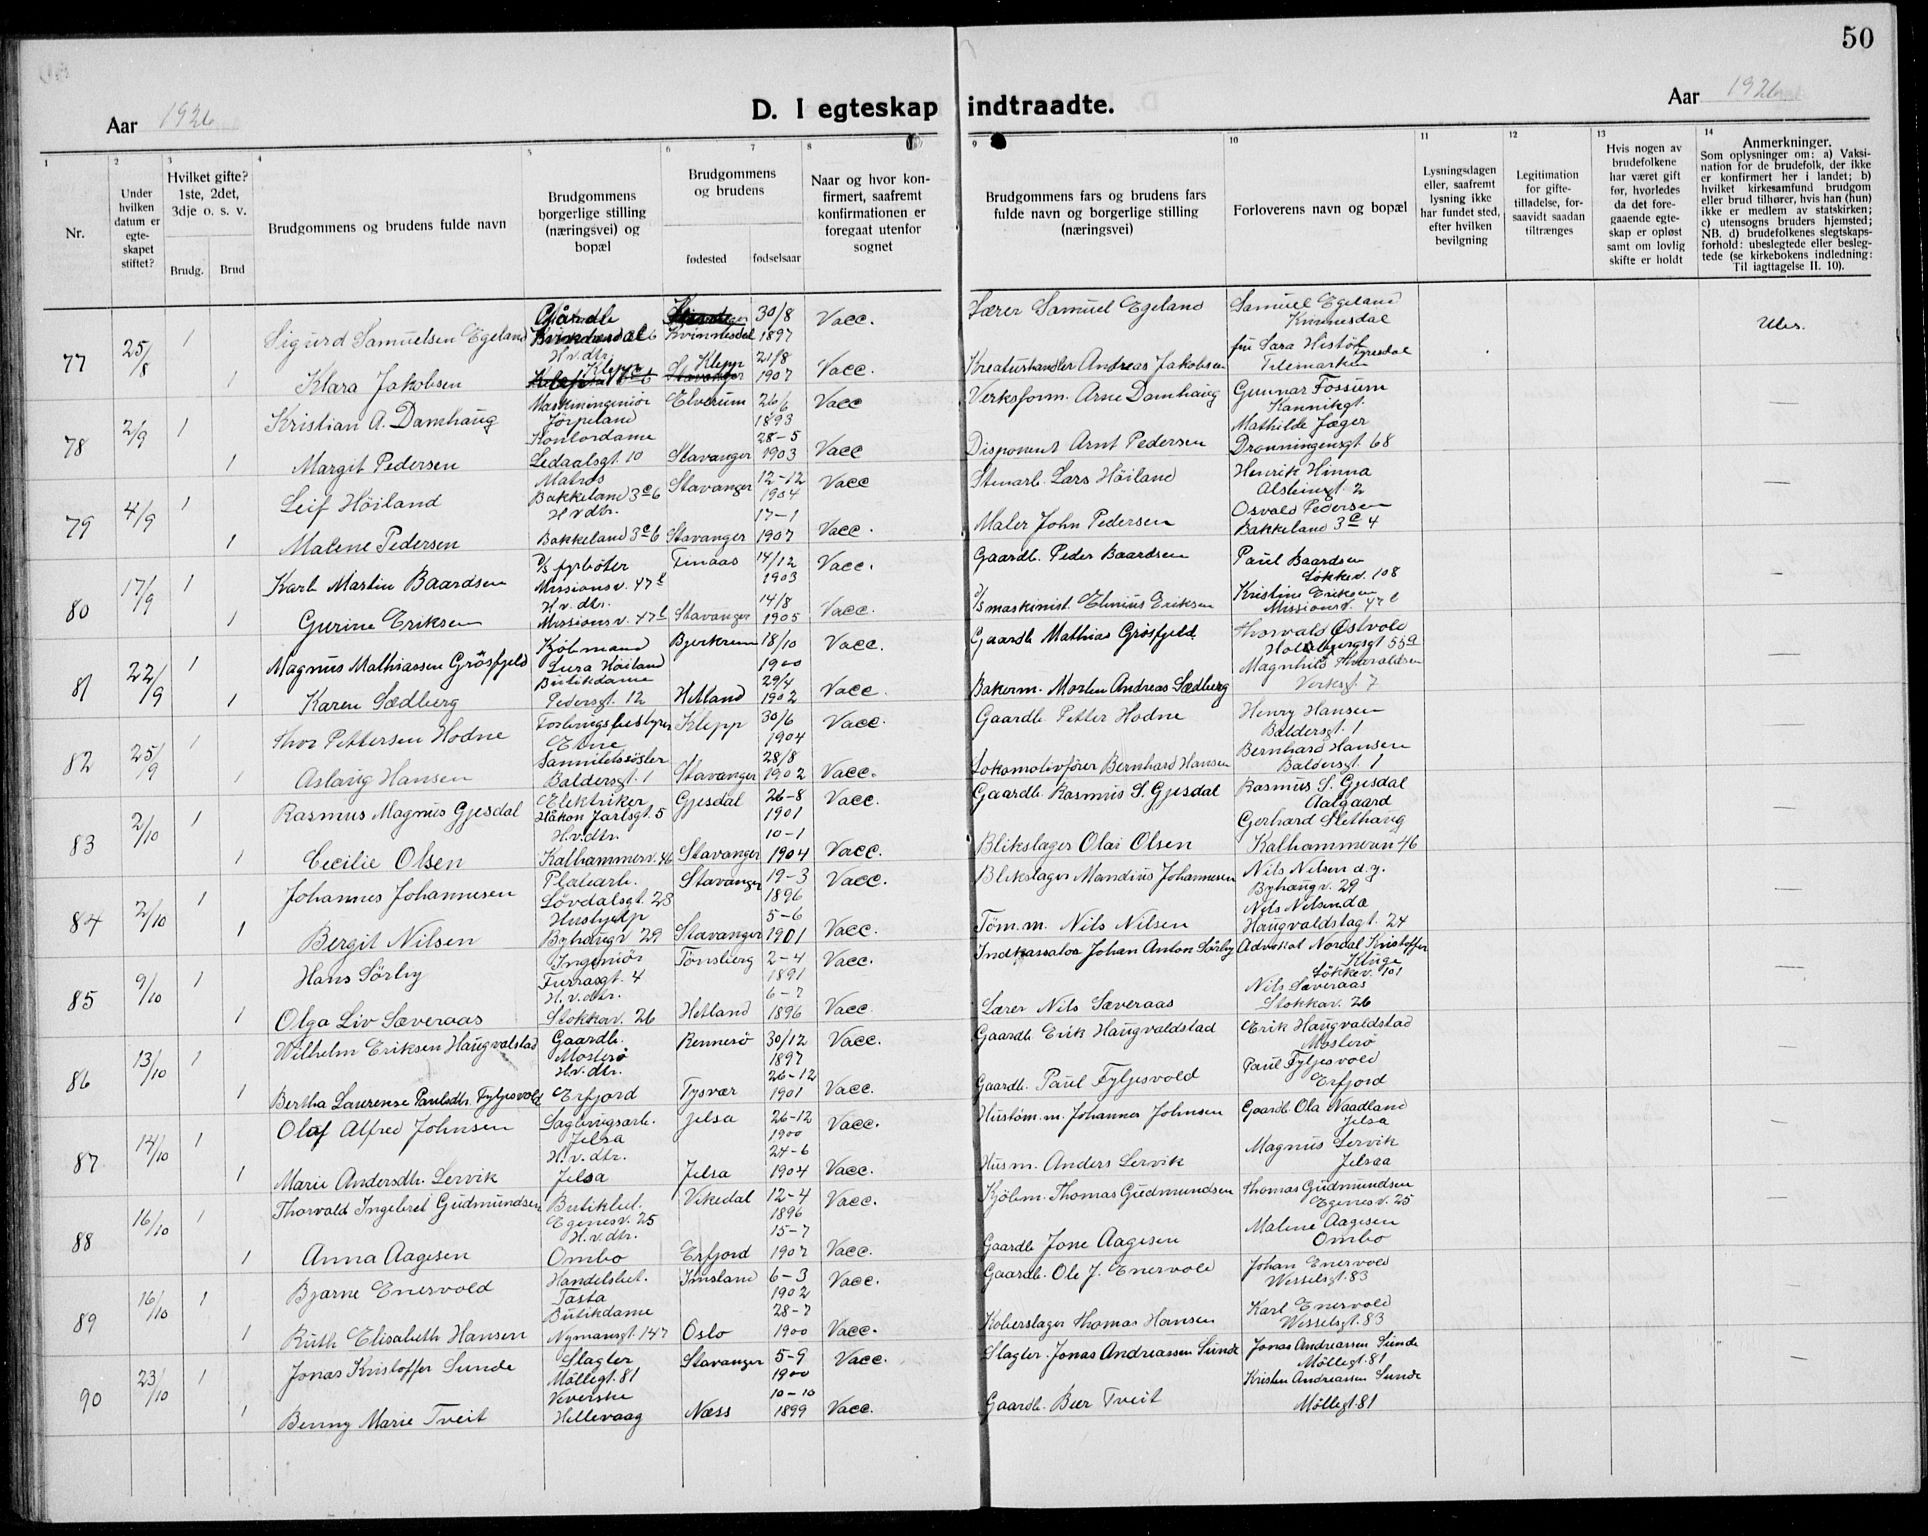 50
Aar 1926
D. I egteskap indtraadte.
Aar 1926
1 2 3 4 5 6 7 8 9 10 11 12 13 14
Nr.
Under hvilken datum er egteskapet stiftet?
Hvilket gifte? 1ste, 2det, 3dje o. s. v.
Brudg. Brud
Brudgommens og brudens fulde navn
Brudgommens borgerlige stilling (næringsvei) og bopæl
Brudgommens og brudens
fødested fødselsaar
Naar og hvor konfirmert, saafremt konfirmationen er foregaat utenfor sognet
Brudgommens fars og brudens fars fulde navn og borgerlige stilling (næringsvei)
Forloverens navn og bopæl
Lysningsdagen eller, saafremt lysning ikke har fundet sted, efter hvilken bevilgning
Legitimation for giftetilladelse, forsaavidt saadan tiltrænges
Hvis nogen av brudefolkene har været gift før, hvorledes da det foregaaende egteskap er opløst samt om lovlig skifte er holdt
Anmerkninger.
Som oplysninger om: a) Vaksination for de brudefolk, der ikke er konfirmert her i landet; b) hvilket kirkesamfund brudgom eller brud tilhører, hvis han (hun) ikke er medlem av statskirken; c) utensogns bruders hjemsted; NB. d) brudefolkenes slegtskapsforhold: ubeslegtede eller beslegtede (se kirkebokens indledning: Til iagttagelse II. 10).
77 25/8 1 Sigurd Samuelsen Egeland Gårdb. Kvinnesdal 30/8 1897 Vacc. Lærer Samuel Egeland Samuel Egeland Kvinnesdal Ube.
1 Klara Jakobsen H.v.dtr. Klepp Klepp 21/8 1907 Vacc. Kreaturhandler Andreas Jakobsen fru Sara Histöl Fyresdal Telemarken
78 2/9 1 Kristian A. Damhaug Maskiningeniör Jørpeland Elverum 26/6 1893 Vacc Verksform. Arne Damhaug Gunnar Fossum Kannikgt. —
1 Margit Pedersen Kontordame Ledaalsgt. 10 Stavanger 28-5 1903 Vacc Disponent Arnt Pedersen Mathilde Jæger Dronningensgt. 68
79 4/9 1 Leif Höiland Matros Bakkeland 3c6 Stavanger 12-12 1904 Vacc Stenarb. Lars Höiland Henrik Hinna Alsteinsgt. 2 —
1 Malene Pedersen H.v.dtr. Bakkeland 3c6 Stavanger 17-1 1907 Vacc. Maler John Pedersen Osvald Pedersen Bakkeland 3c 4
80 17/9 1 Karl Martin Baardsen D/S fyrböter Missionsv. 47 l Finaas 14/12 1903 Vacc. Gaardb. Peder Baardsen Paul Baardsen Lökkev. 108 —
1 Gurine Eriksen H.v.dtr. Missionsv. 47 l Stavanger 14/8 1905 Vacc. D/S maskinist. Elenius Eriksen Kristine Eriksen Missionsv. 47 l
81 22/9 1 Magnus Mathiassen Grösfjeld Köbmand Lura Höiland Bjerkrem 18/10 1900 Vacc. Gaardb Mathias Grösfjeld Thorvald Østvold Holbergsgt 55a —
1 Karen Sædberg Butikdame Pedersgt. 12 Hetland 29/4 1902 Vacc. Bakerm. Morten Andreas Sædberg Magnhild Haraldsen Verksgt. 7
82 25/9 1 Thor Pettersen Hodne Forbrugsbestyrer Etne Klepp 30/6 1904 Vacc. Gaardb Petter Hodne Henry Hansen Baldersgt. 1 —
1 Aslaug Hansen Sanitetssöster Baldersgt. 1 Stavanger 28/8 1902 Vacc. Lokomotivfører Bernhard Hansen Bernhard Hansen Baldersgt. 1
83 2/10 1 Rasmus Magnus Gjesdal Elektriker Håkon Jarlsgt. 5 Gjesdal 26-8 1901 Vacc. Gaardb. Rasmus S. Gjesdal Rasmus S. Gjesdal Aalgaard —
1 Cecilie Olsen H.v.dtr. Kalhammerv. 46 Stavanger 10-1 1904 Vacc. Blikslager Olai Olsen Gerhard Slethaug Kalhammervn 46
84 2/10 1 Johannes Johannesen Platearb. Lövdalsgt. 23 Stavanger 19-3 1896 Vacc. Blikslager Mandius Johannesen Nils Nilsen d.y. Byhaugv. 29 —
1 Bergit Nilsen Hushjelp Byhaugv 29 Stavanger 5-6 1901 Vacc. Töm.m. Nils Nilsen Nils Nilsen d.æ. Haugvaldstagt. 24
85 9/10 1 Hans Sörby Ingeniör Furrasgt. 4 Tönsberg 2-4 1891 Vacc. Indkassator Johan Anton Sörby Advokat Nordal Kristoffer Kluge Lökkev. 101 —
1 Olga Liv Sæveraas H.v.dtr. Stokkav. 26 Hetland 6-7 1896 Vacc. Lærer Nils Sæveraas Nils Sæveraas Stokkav. 26
86 13/10 1 Wilhelm Eriksen Haugvalstad Gaardb. Mosterö Rennesö 30/12 1897 Vacc. Gaardb Erik Haugvaldstad Erik Haugvaldstad Mosterö —
1 Bertha Laurense Paulsdtr. Fylgjesvold H.v.dtr. Erfjord Tysvær 26-12 1901 Vacc. Gaardb. Paul Fylgjesvold Paul Fylgjesvold Erfjord
87 14/10 1 Olaf Alfred Johnsen Sagbrugsarb. Jelsa Jelsa 26-12 1900 Vacc. Hustöm.m. Johannes Johnsen Gaardb. Ola Naadland Jelsa —
1 Marie Andersdtr. Lervik H.v.dtr. Jelsa Jelsa 24-6 1904 Vacc. Husm. Anders Lervik Magnus Lervik Jelsaa
88 16/10 1 Thorvald Ingebret Gudmundsen Butikbet. Egenesv. 25 Vikedal 12-4 1896 Vacc. Kjöbm. Thomas Gudmundsen Thomas Gudmundsen Egenesv. 25 —
1 Anna Aagesen H.v.dtr. Ombo Erfjord 15-7 1907 Vacc. Gaardb Jone Aagesen Malene Aagesen Ombo
89 16/10 1 Bjarne Enersvold Handelsbet. Tasta Imsland 6-3 1902 Vacc. Gaardb. Ole J. Enersvold Johan Enersvold Wesselsgt. 83 —
1 Ruth Elisabeth Hansen Butikdame Nymansgt. 147 Oslo 28-7 1900 Vacc. Koberslager Thomas Hansen Karl Enersvold Wesselsgt. 83
90 23/10 1 Jonas Kristoffer Sunde Slagter Möllegt. 81 Stavanger 5-9 1900 Vacc. Slagter. Jonas Andreassen Sunde Jonas Andreassen Sunde Möllegt. 81 —
1 Benny Marie Tveit Veverske Hillevaag Næss 10-10 1899 Vacc. Gaardb. Beer Tveit Kristen Andreassen Sunde Möllegt. 81